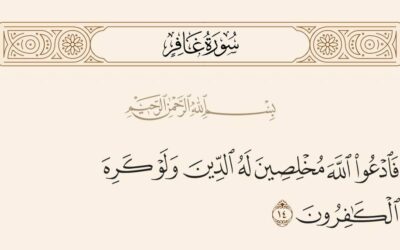 سُورَةُ غَافِرٍ
بِسْمِ اللَّهِ الرَّحْمَٰنِ الرَّحِيمِ
فَادْعُوا۟ اللَّهَ مُخْلِصِينَ لَهُ الدِّينَ وَلَوْ كَرِهَ
الْكَافِرُونَ ١٤